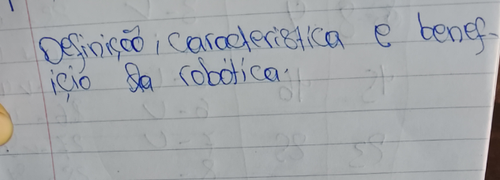 Definição, caracteristica e benef-
ição da robótica.